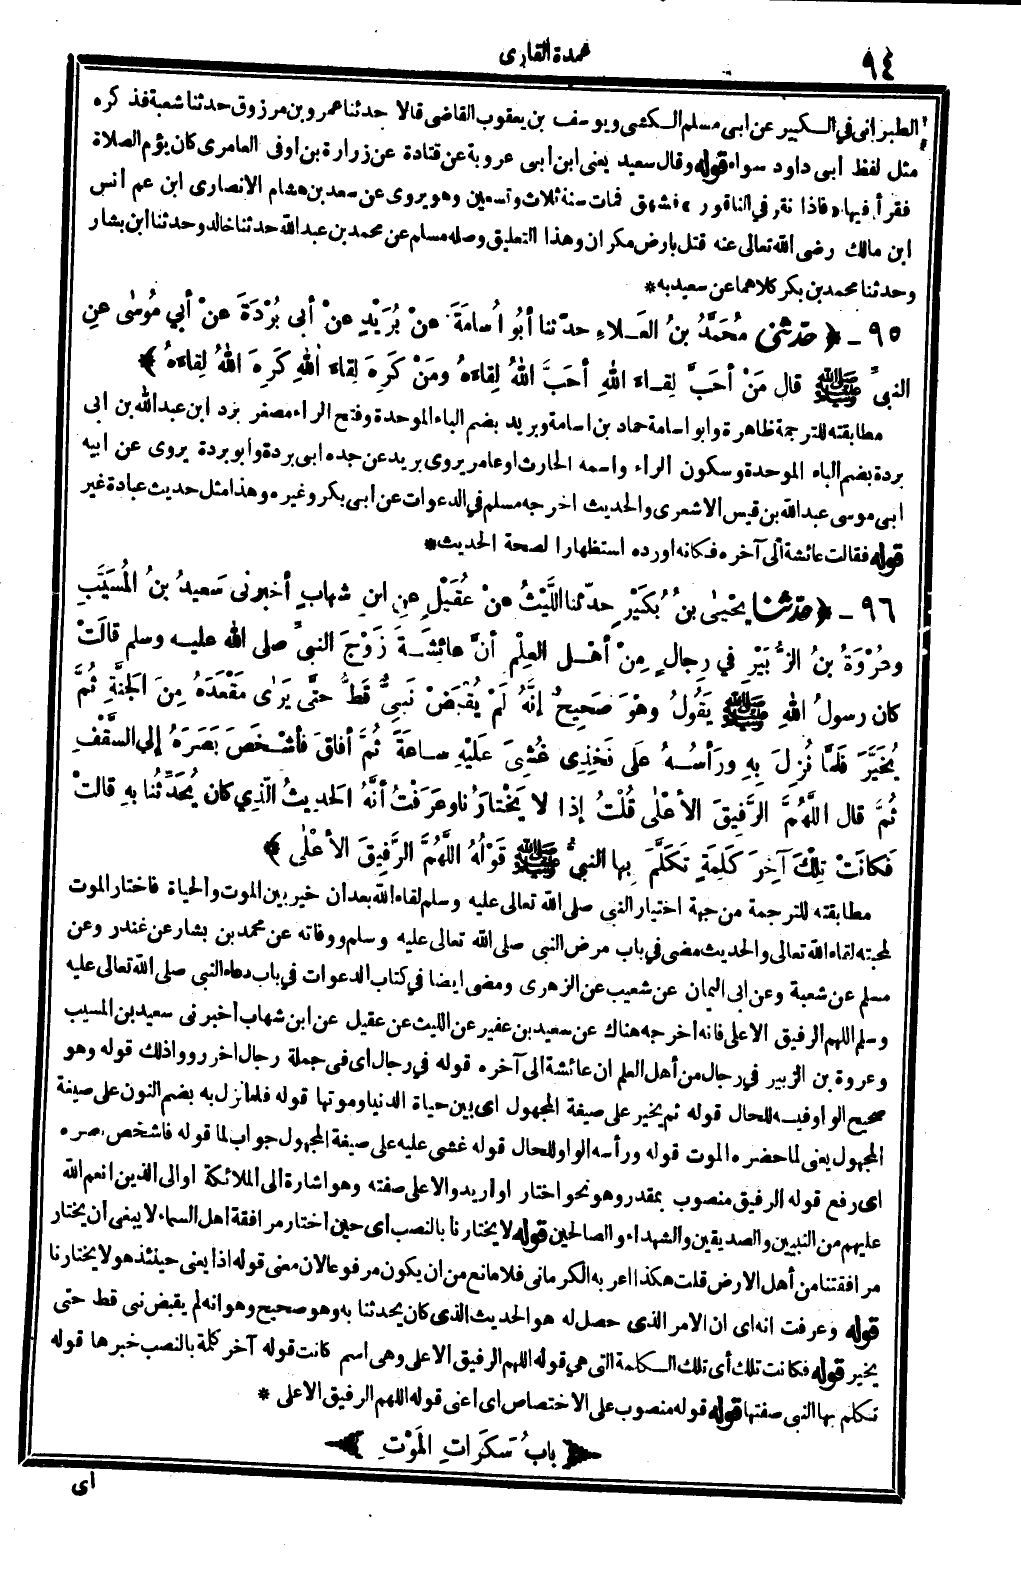 ٩٤
عمدة القارى
الطبرانى في الكبير عن ابى مسلم الكشى ويوسف بن يعقوب القاضى قالا حدثنا عمرو بن مرزوق حدثنا شعبة فذكره
مثل لفظ ابى داود سواء قوله وقال سعيد يعنى ابن ابى عروبة عن قتادة عن زرارة بن اوفى العامرى كان يؤم الصلاة
فقرأ فيها «فاذا نقر في الناقور» فشهق فمات سنة ثلاث وتسعين وهو يروى عن سعد بن هشام الانصارى ابن عم انس
ابن مالك رضى الله تعالى عنه قتل بارض مكران وهذا التعليق وصله مسلم عن محمد بن عبدالله حدثنا خالد وحدثنا ابن بشار
وحدثنا محمد بن بكر كلاهما عن سعيد به *
٩٥ - ﴿ حدثني مُحَمَّدُ بنُ العَـلاءِ حدّثنا أبُو اُسامَةَ عنْ بُرَيْدٍ عنْ أبى بُرْدَةَ عنْ أبي مُوسٰى عنِ
النبيِّ ﷺ قال مَنْ أحَبَّ لِقـاء اللهِ أحَبَّ اللهُ لِقاءَهُ ومَنْ كَرِهَ لِقاءَ اللهِ كَرِهَ اللهُ لِقاءَهُ ﴾
مطابقته للترجمة ظاهرة وابو اسامة حماد بن اسامة وبريد بضم الباء الموحدة وفتح الراء مصغر برد ابن عبدالله بن ابى
بردة بضم الباء الموحدة وسكون الراء واسمه الحارث او عامر يروى بريد عن جده ابى بردة وابو بردة يروى عن ابيه
ابى موسى عبدالله بن قيس الاشعرى والحديث اخرجه مسلم في الدعوات عن ابى بكر وغيره وهذا مثل حديث عبادة غير
قوله فقالت عائشة الى آخره فكانه اورده استظهارا لصحة الحديث *
٩٦ - ﴿ حدثنا يَحْيىٰ بنُ بُكَيْرٍ حدّثنا اللَّيْثُ عنْ عُقَيْلٍ عنِ ابنِ شِهابٍ أخبرنى سَعِيدُ بنُ المُسَيَّبِ
وعُرْوَةُ بنُ الزُّبَيْرِ في رِجالٍ مِنْ أهْـلِ العِلْمِ أنَّ عائِشَـةَ زَوْجَ النبيِّ صلى الله عليه وسلم قالَتْ
كان رسولُ اللهِ ﷺ يَقُولُ وهْوَ صَحِيحٌ إنَّهُ لَمْ يُقْبَضْ نَبِيٌّ قَطُّ حتَّى يَرَى مَقْعَدَهُ مِنَ الجَنَّةِ ثُمَّ
يُخَيَّرَ فَلَمَّا نُزِلَ بِهِ ورَأسُـهُ علَى فَخِذِى غُشِيَ عَلَيْهِ ساعَةً ثُمَّ أفاقَ فأشْخَصَ بَصَرَهُ إلى السَّقْفِ
ثُمَّ قال اللَّهُمَّ الرَّفِيقَ الأعْلٰى قُلْتُ إذا لا يَخْتارُنا وعَرَفْتُ أنَّهُ الحَدِيثُ الَّذِي كان يُحَدِّثُنا بِهِ قالَتْ
فَكانَتْ تِلْكَ آخِرَ كَلِمَةٍ تَكَلَّمَ بِها النبيُّ ﷺ قَوْلُهُ اللَّهُمَّ الرَّفِيقَ الأعْلٰى ﴾
مطابقته للترجمة من جهة اختيار النبى صلى الله تعالى عليه وسلم لقاء الله بعد ان خير بين الموت والحياة فاختار الموت
لمحبته لقاء الله تعالى والحديث مضى في باب مرض النبى صلى الله تعالى عليه وسلم ووفاته عن محمد بن بشار عن غندر وعن
مسلم عن شعبة وعن ابى اليمان عن شعيب عن الزهرى ومضى ايضا في كتاب الدعوات في باب دعاء النبى صلى الله تعالى عليه
وسلم اللهم الرفيق الاعلى فانه اخرجه هناك عن سعيد بن عفير عن الليث عن عقيل عن ابن شهاب اخبرنى سعيد بن المسيب
وعروة بن الزبير في رجال من أهل العلم ان عائشة الى آخره قوله في رجال اى فى جملة رجال اخر رووا ذلك قوله وهو
صحيح الواو فيه للحال قوله ثم يخير على صيغة المجهول اى بين حياة الدنيا وموتها قوله فلما نزل به بضم النون على صيغة
المجهول يعنى لما حضره الموت قوله ورأسه الواو للحال قوله غشى عليه على صيغة المجهول جواب لما قوله فاشخص بصره
اى رفع قوله الرفيق منصوب بمقدر وهو نحو اختار او اريد والاعلى صفته وهو اشارة الى الملائكة او الى الذين انعم الله
عليهم من النبيين والصديقين والشهداء والصالحين قوله لا يختارنا بالنصب اى حين اختار مرافقة اهل السماء لا يبغى أن يختار
مرافقتنا من أهل الارض قلت هكذا اعربه الكرمانى فلا مانع من ان يكون مرفوعا لان معنى قوله اذا يعنى حينئذ هو لا يختارنا
قوله وعرفت انه اى ان الامر الذى حصل له هو الحديث الذى كان يحدثنا به وهو صحيح وهو انه لم يقبض نبى قط حتى
يخير قوله فكانت تلك أى تلك الكلمة التى هي قوله اللهم الرفيق الاعلى وهى اسم كانت قوله آخر كلمة بالنصب خبرها قوله
تكلم بها النبى صفتها قوله قوله منصوب على الاختصاص اى اعنى قوله اللهم الرفيق الاعلى *
﴿ بابُ سَكَرَاتِ المَوْتِ ﴾
اى